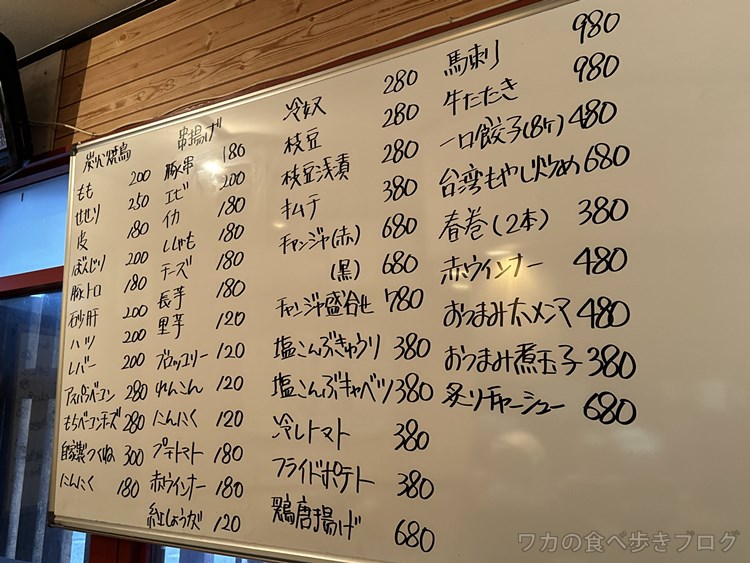 炭火焼鳥
もも 200
せせり 250
皮 180
ぼんじり 200
豚トロ 180
砂肝 200
ハツ 200
レバー 200
アスパラベーコン 280
もちベーコンチーズ 280
自家製つくね 300
にんにく 180
串揚げ
豚串 180
エビ 200
イカ 180
ししゃも 180
チーズ 180
長芋 180
里芋 120
ブロッコリー 120
れんこん 120
にんにく 120
プチトマト 180
赤ウインナー 180
紅しょうが 120
冷奴 280
枝豆 280
枝豆浅漬 280
キムチ 380
チャンジャ(赤) 680
(黒) 680
チャンジャ盛合せ 780
塩こんぶきゅうり 380
塩こんぶキャベツ 380
冷しトマト 380
フライドポテト 380
鶏唐揚げ 680
馬刺り 980
牛たたき 980
一口餃子(8ヶ) 480
台湾もやし炒め 680
春巻(2本) 380
赤ウインナー 480
おつまみ太メンマ 480
おつまみ煮玉子 380
炙りチャーシュー 680
ワカの食べ歩きブログ